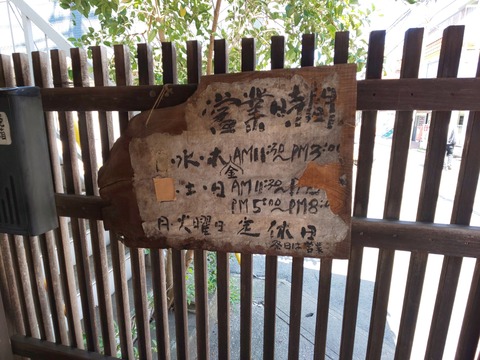 営業時間
・水・木 AM11:30~PM3:00
金
・土・日 AM11:30~
PM5:00~PM8:
月・火曜日定休日
祭日は営業